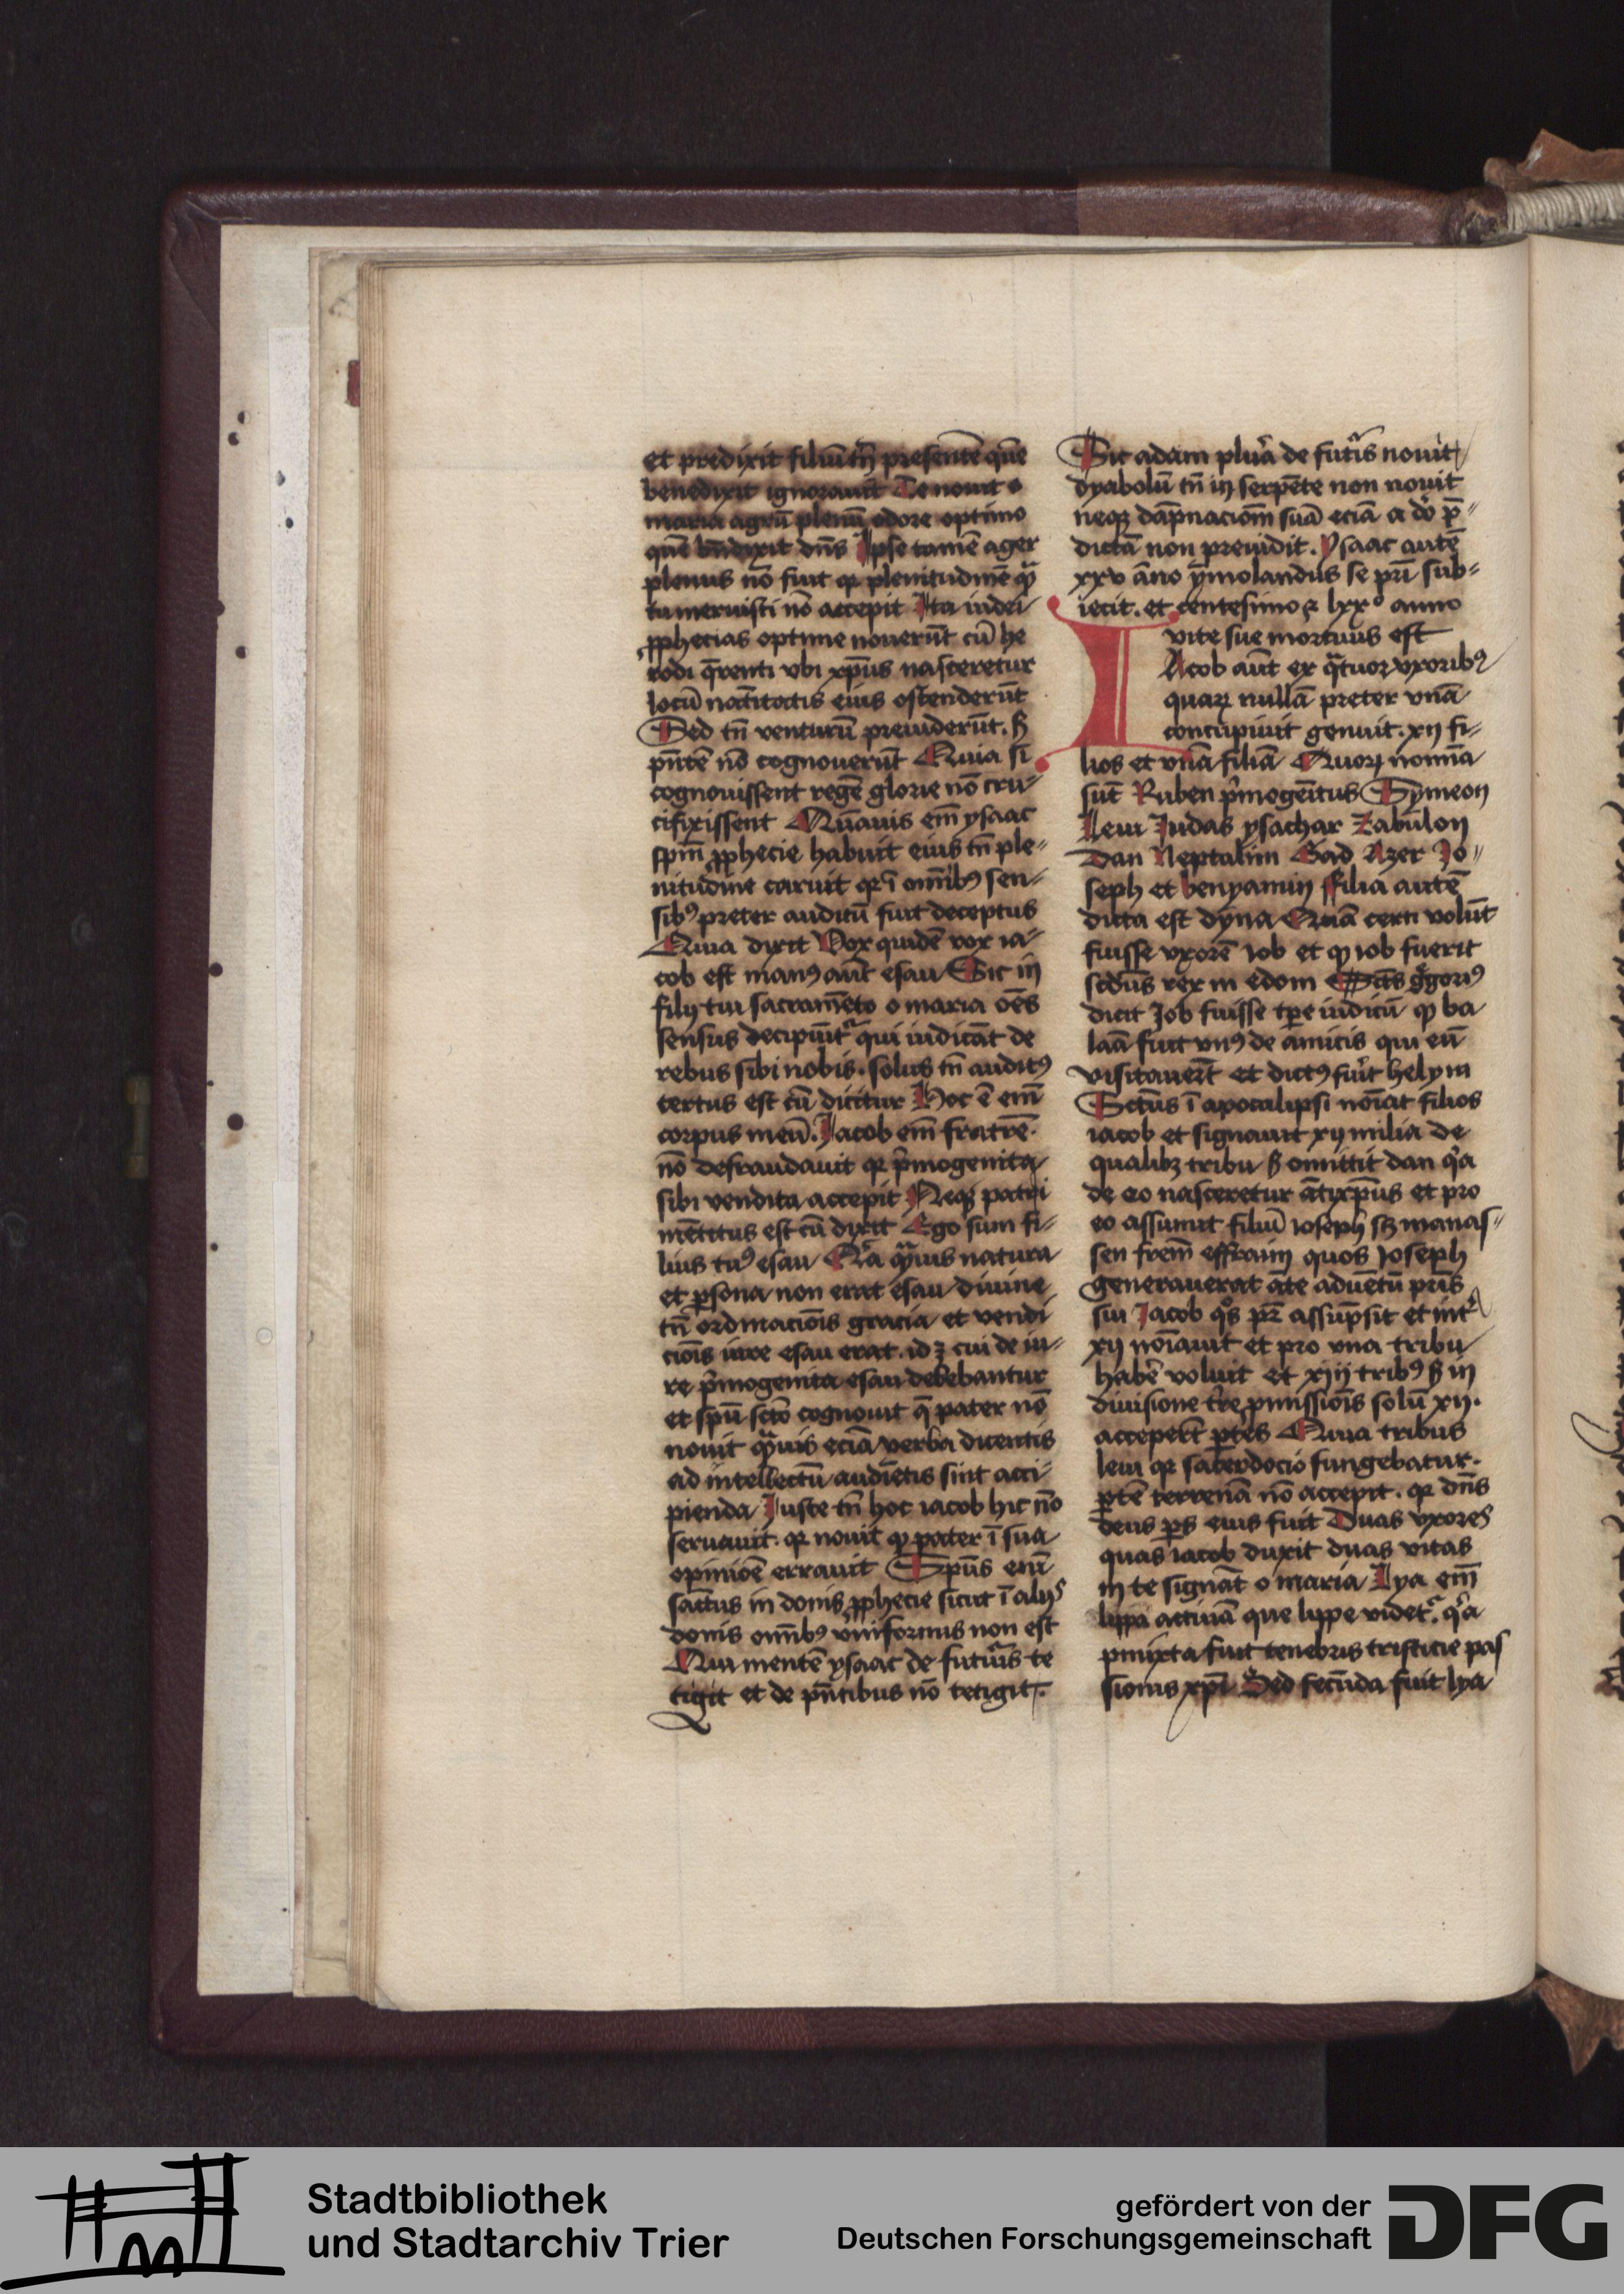 et predixit filiū tn̄ presentē quē
benedixit ignorauit Te nouit o
maria agrū plenū odore optimo
quē bn̄dixit dn̄s Ipse tamē ager
plenus nō fuit qr plenitudinē qͣ
tu meruisti nō accepit Ita iudei
ꝓphecias optime nouerūt cū he
rodi q̄renti vbi xp̄us nasceretur
locū natītatis eius ostenderūt
Sed tn̄ venturū preuiderūt. ꝫ
pn̄tē nō cognouerūt Quia si
cognouissent regē glorie nō cru-
cifixissent Quāuis em̄ ysaac
spm̄ ꝓphecie habuit eius tn̄ ple-
nitudine caruit qr ī om̄ibꝰ sen-
sibꝰ preter auditū fuit deceptus
Quia dixit Vox quidē vox ia-
cob est manꝰ aūt esau Sic in
filij tui sacramēto o maria oēs
sensus decipiūtᷣ qui iudicāt de
rebus sibi nobis. solus tn̄ auditꝰ
certus est cū dicitur Hoc ē em̄
corpus meū. Jacob em̄ fratrē
nō defraudauit qr p̄mogenita
sibi vendita accepit Neqꝫ patri
mētitus est cū dixit Ego sum fi-
lius tuꝰ esau Qͣ qͣuis natura
et ꝑsona non erat esau diuine
tn̄ ordinaciōis gracia et vendi
ciōis iure esau erat. id ꝫ cui de iu-
re p̄mogenita esau debebantur
et spū scto cognouit q̄ pater nō
nouit qͣuis eciā verba dicentis
ad intellectū audiētis sint acci-
pienda Juste tn̄ hoc iacob hic nō
seruauit. qr nouit qꝫ pater ī sua
opinioē errauit Spūs enī
sāctus in donis ꝓphecie sicut ī alijs
donis om̄ibꝰ vniformis non est
Qui mentē ysaac de futuris te
tigit et de pn̄tibus nō tetigit.
Sic adam plura de futuris nouit
dyabolū tn̄ in serpēte non nouit
neqꝫ dāpnaciom̄ suā eciā a do p̄-
dictā non preuidit. Ysaac autē
xxv āno ymolandus se pr̄i sub-
iecit. et centesimo ꝫ lxxͦ anno
vite sue mortuus est
IAcob aūt ex qͣtuor vxoribꝰ
quarꝝ nullā preter vnā
concupiuit genuit. xij fi-
lios et vnā filiā Quorꝝ nomīa
sūt Ruben p̄mogeītus Symeon
Leui Judas ysachar Zabulon
Dan Neptalim Gad Azer Jo-
seph et benyamin Filia autē
dicta est dyna Quā certi volūt
fuisse vxorē iob et qꝫ iob fuerit
scdus rex in edom Scts gͤgoriꝰ
dicit Job fuisse tꝑe iudicū qꝫ ba
laā fuit vnꝰ de amicis qui eū
visitauerūt et dictꝰ fuit helym
Sctus ī apocalipsi noīat filios
iacob et signauit xij milia de
qualibꝫ tribu ꝫ omittit dan qͥa
de eo nasceretur ātixp̄us et pro
eo assumit filiū ioseph sꝫ manas-
sen frem̄ effraim quos Joseph
generauerat āte aduētū pr̄is
sui Jacob qͦs pr̄ assūpsit et intͣ
xij noīauit et pro vna tribu
habē voluit et xiij tribꝰ ꝫ in
diuisione tr̄e ꝓmissiōis solū xij.
acceperūt ꝑtes Quia tribus
leui qr sacerdocio fungebatur.
ꝑtē terrenā nō accepit. qr dn̄s
deus ꝑs eius fuit Duas vxores
quas iacob duxit duas vitas
in te signāt o maria Lya em̄
lippa actiuā que lippe videtᷣ. qͥa
ꝑmixta fuit tenebris tristicie pas
sionis xp̄i Sed fecūda fuit lya
Stadtbibliothek
und Stadtarchiv Trier
gefördert von der
Deutschen Forschungsgemeinschaft
DFG